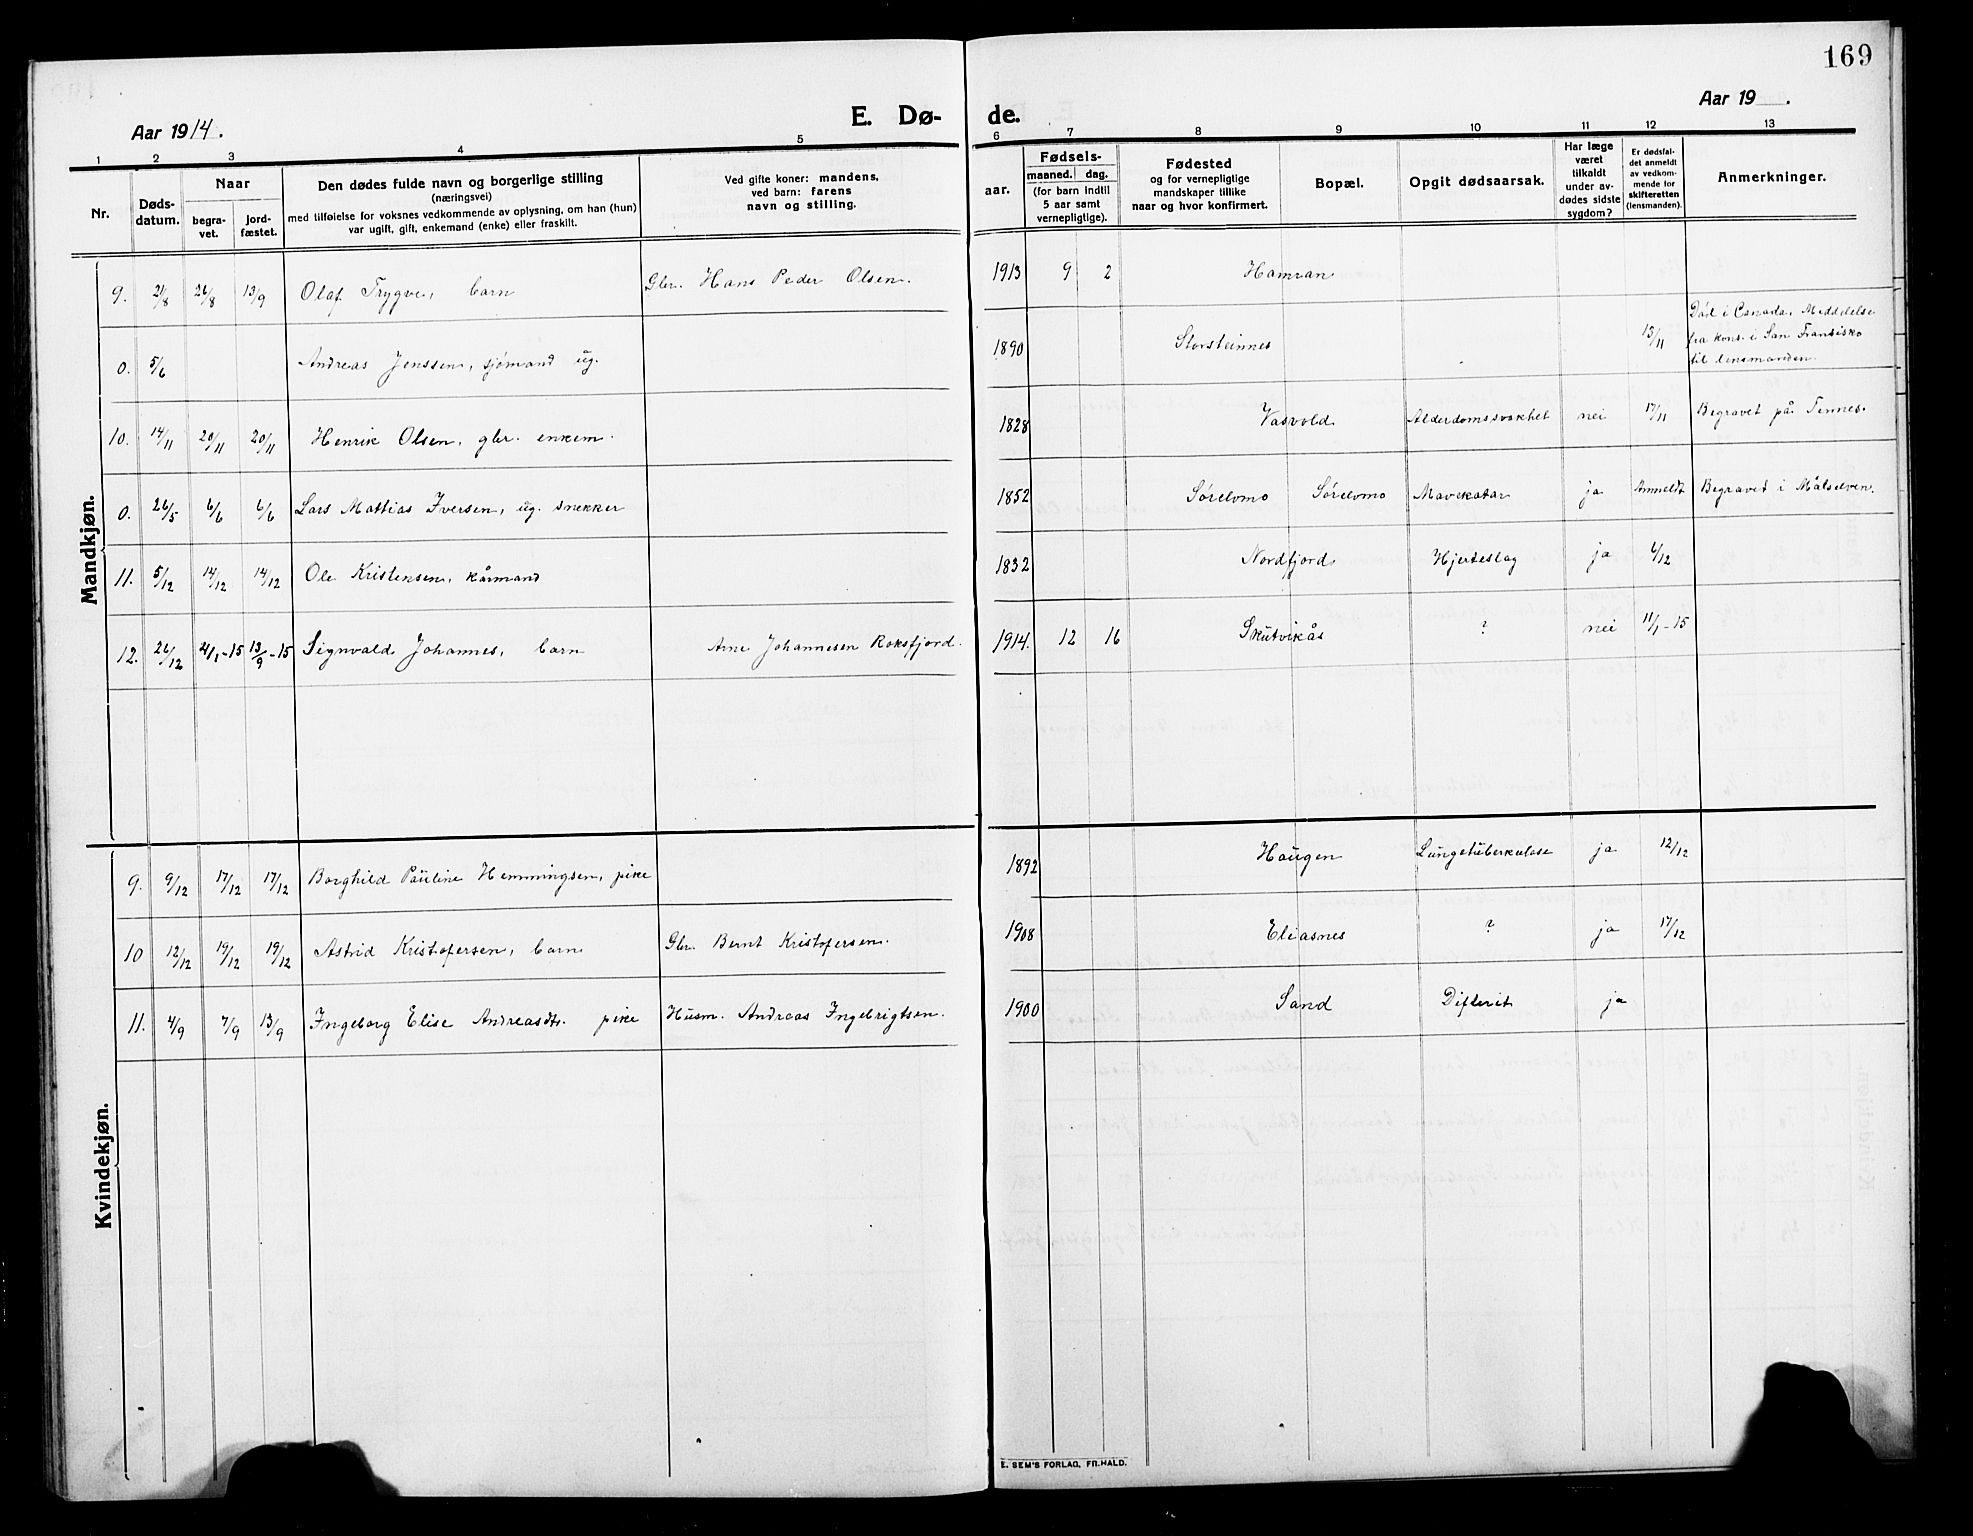 169
Aar 1914.
E. Dø-
de.
Aar 19   .
1 2 3 4 5 6 7 8 9 10 11 12 13
Nr.
Døds-
datum.
Naar
begra-
vet.
jord-
fæstet.
Den dødes fulde navn og borgerlige stilling
(næringsvei)
med tilføielse for voksnes vedkommende av oplysning, om han (hun)
var ugift, gift, enkemand (enke) eller fraskilt.
Ved gifte koner: mandens,
ved barn: farens
navn og stilling.
aar.
Fødsels-
maaned. dag.
(for barn indtil
5 aar samt
vernepligtige).
Fødested
og for vernepligtige
mandskaper tillike
naar og hvor konfirmert.
Bopæl.
Opgit dødsaarsak.
Har læge
været
tilkaldt
under av-
dødes sidste
sygdom?
Er dødsfal-
det anmeldt
av vedkom-
mende for
skifteretten
(lensmanden).
Anmerkninger.
Mandkjøn.
9. 21/8 26/8 13/9 Olaf Trygve, barn Gbr. Hans Peder Olsen. 1913 9 2 Hamran
0. 5/6 Andreas Jenssen, sjømand ug. 1890 Storsteinnes 13/11 Død i Canada. Meddelse
fra kons. i San Fransisko
til lensmanden.
10. 14/11 20/11 20/11 Henrik Olsen, gbr. enkem. 1828 Vasvold Alderdomssvakhet nei 17/11 Begravet på Tennes.
0. 26/5 6/6 6/6 Lars Mattias Iversen, ug. snekker 1852 Sørelvmo Sørelvmo Mavekatar ja Anmeldt Begravet i Målselven.
11. 5/12 14/12 14/12 Ole Kristensen, kårmand 1832 Nordfjord Hjerteslag ja /12
12. 26/12 4/1-15 13/9-15 Signvald Johannes, barn Arne Johannesen Roksfjord. 1914. 12 16 Skutvikås ? nei 11/1-15
Kvindekjøn.
9. 9/12 17/12 17/12 Borghild Pauline Hemmingsen, pike 1892 Haugen Lungetuberkulose ja 12/12
10 12/12 19/12 19/12 Astrid Kristofersen, barn Gbr. Bernt Kristofersen. 1908 Eliasnes ? ja 17/12
11. 4/9 7/9 13/9 Ingeborg Elise Andreasdt. pike Husm. Andreas Ingebrigtsen. 1900 Sand Difterit ja
E. SEM'S FORLAG, FR.HALD.